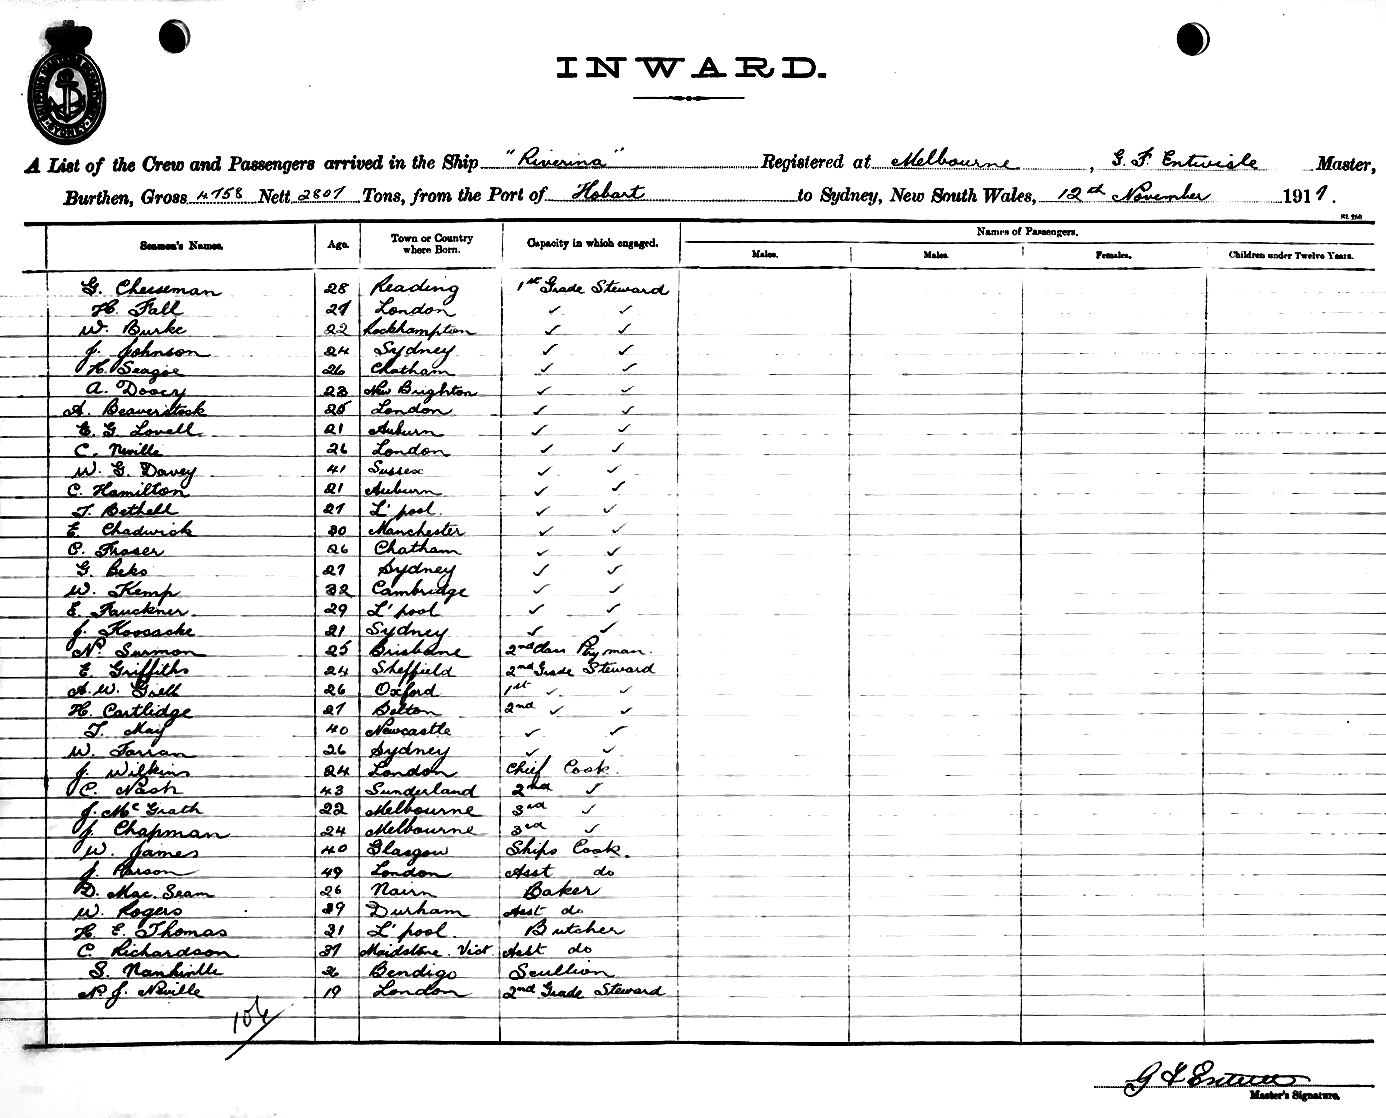 INWARD.
A List of the Crew and Passengers arrived in the Ship "Riverina" Registered at Melbourne, G. F. Entwisle Master,
Burthen, Gross 4758 Nett 2807 Tons, from the Port of Hobart to Sydney, New South Wales, 12th November 1917.
Seamen's Names. Age. Town or Country where Born. Capacity in which engaged. Names of Passengers.
Males. Males. Females. Children under Twelve Years.
G. Cheeseman 28 Reading 1st Grade Steward
H. Fall 27 London ✓ ✓
W. Burke 22 Rockhampton ✓ ✓
J. Johnson 24 Sydney ✓ ✓
H. Seagoe 26 Chatham ✓ ✓
A. Doocy 23 New Brighton ✓ ✓
A. Beaverstock 25 London ✓ ✓
E. G. Lovell 21 Auburn ✓ ✓
C. Neville 26 London ✓ ✓
W. G. Davey 41 Sussex ✓ ✓
C. Hamilton 21 Auburn ✓ ✓
T. Bethell 27 L'pool. ✓ ✓
E. Chadwick 30 Manchester ✓ ✓
C. Fraser 26 Chatham ✓ ✓
G. Beks 27 Sydney ✓ ✓
W. Kemp 32 Cambridge ✓ ✓
E. Fauckner. 29 L'pool ✓ ✓
J. Koosache 21 Sydney ✓ ✓
N. Surmon 25 Brisbane 2nd Class Pyman.
E. Griffiths 24 Sheffield 2nd Grade Steward
A. W. Grell 26 Oxford 1st ✓ ✓
H. Cartlidge 27 Bolton 2nd ✓ ✓
T. May 40 Newcastle ✓ ✓
W. Farran 26 Sydney ✓ ✓
J. Wilkins 24 London Chief Cook.
C. Nash 43 Sunderland 2nd ✓
J. McGrath 22 Melbourne 3rd ✓
J. Chapman 24 Melbourne 3rd ✓
W. James 40 Glasgow Ships Cook.
J. Parson 49 London Asst do
D. Mac. Seam 26 Nairn Baker
W. Rogers 39 Durham Asst do
H. E. Thomas 31 L'pool. Butcher
C. Richardson 37 Maidstone. Vict Asst do
S. Nankiville 26 Bendigo Scullion
N. J. Neville 19 London 2nd Grade Steward
106
G F Entwisle
Master's Signature.